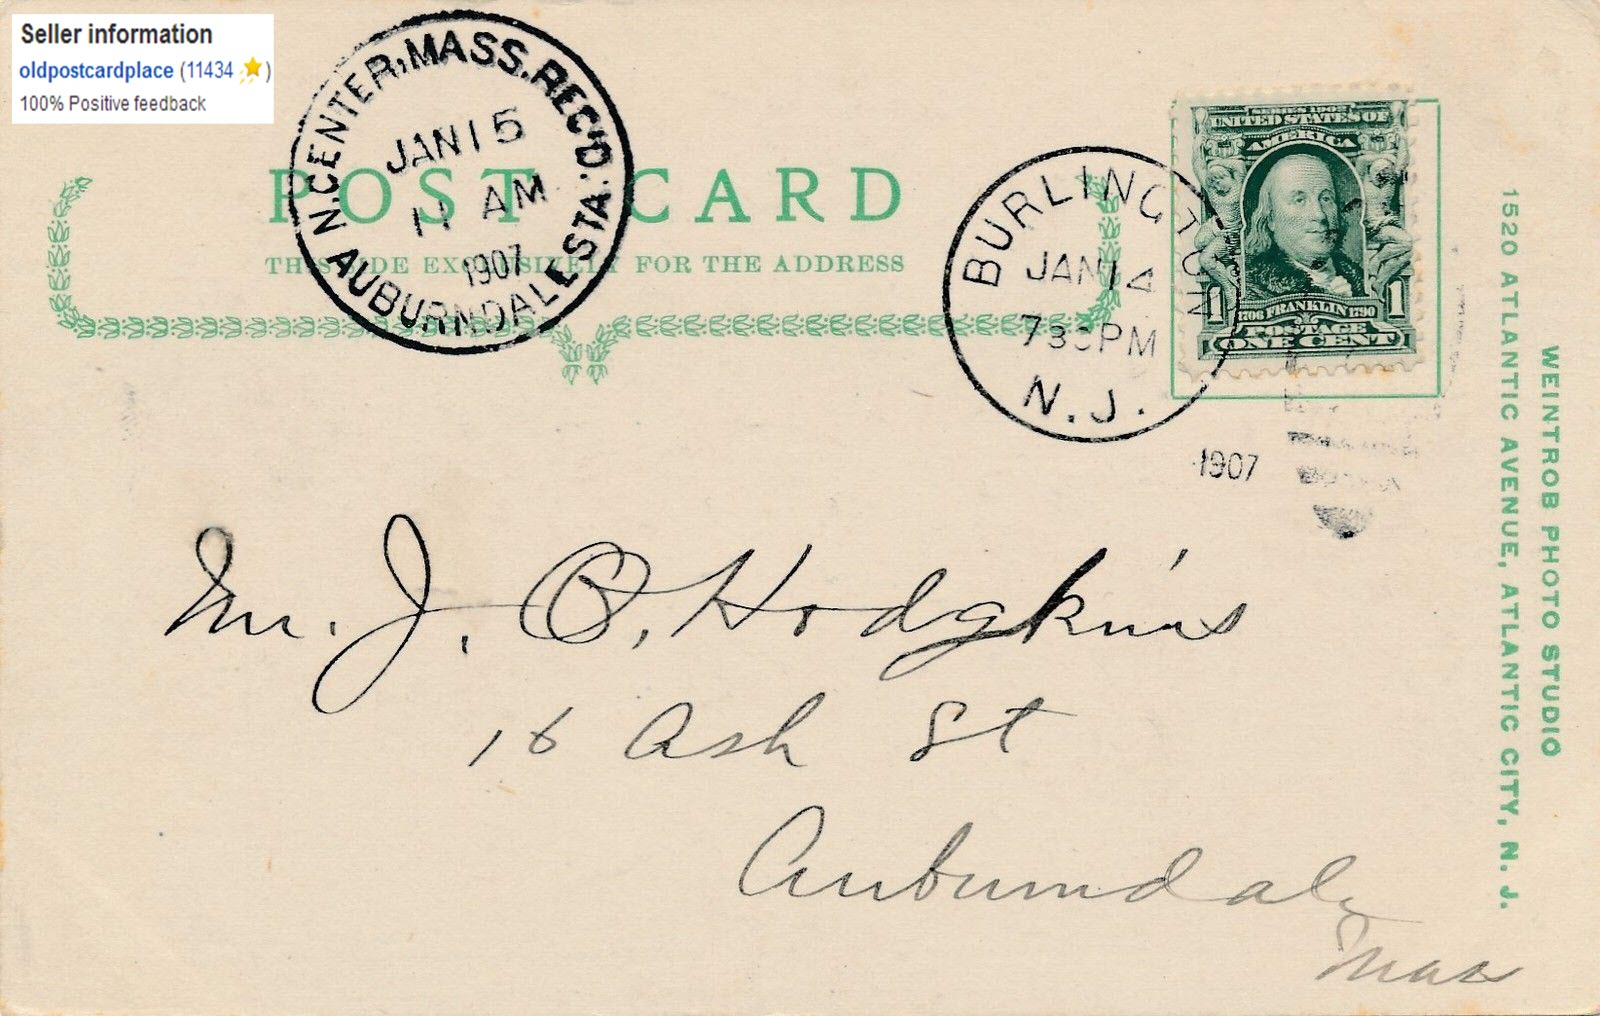 Seller information
oldpostcardplace (11434)
100% Positive feedback
N. CENTER, MASS. REC'D.
JAN 15
11 AM
1907
AUBURNDALE STA.
POST CARD
THIS SIDE EXCLUSIVELY FOR THE ADDRESS
BURLINGTON
JAN 14
7 30 PM
N. J.
1907
SERIES 1902
UNITED STATES OF
AMERICA
1 1
1706 FRANKLIN 1790
POSTAGE
ONE CENT
WEINTROB PHOTO STUDIO
1520 ATLANTIC AVENUE, ATLANTIC CITY, N. J.
Mr. J. O. Hodgkins
16 Ash St
Auburndale
Mass